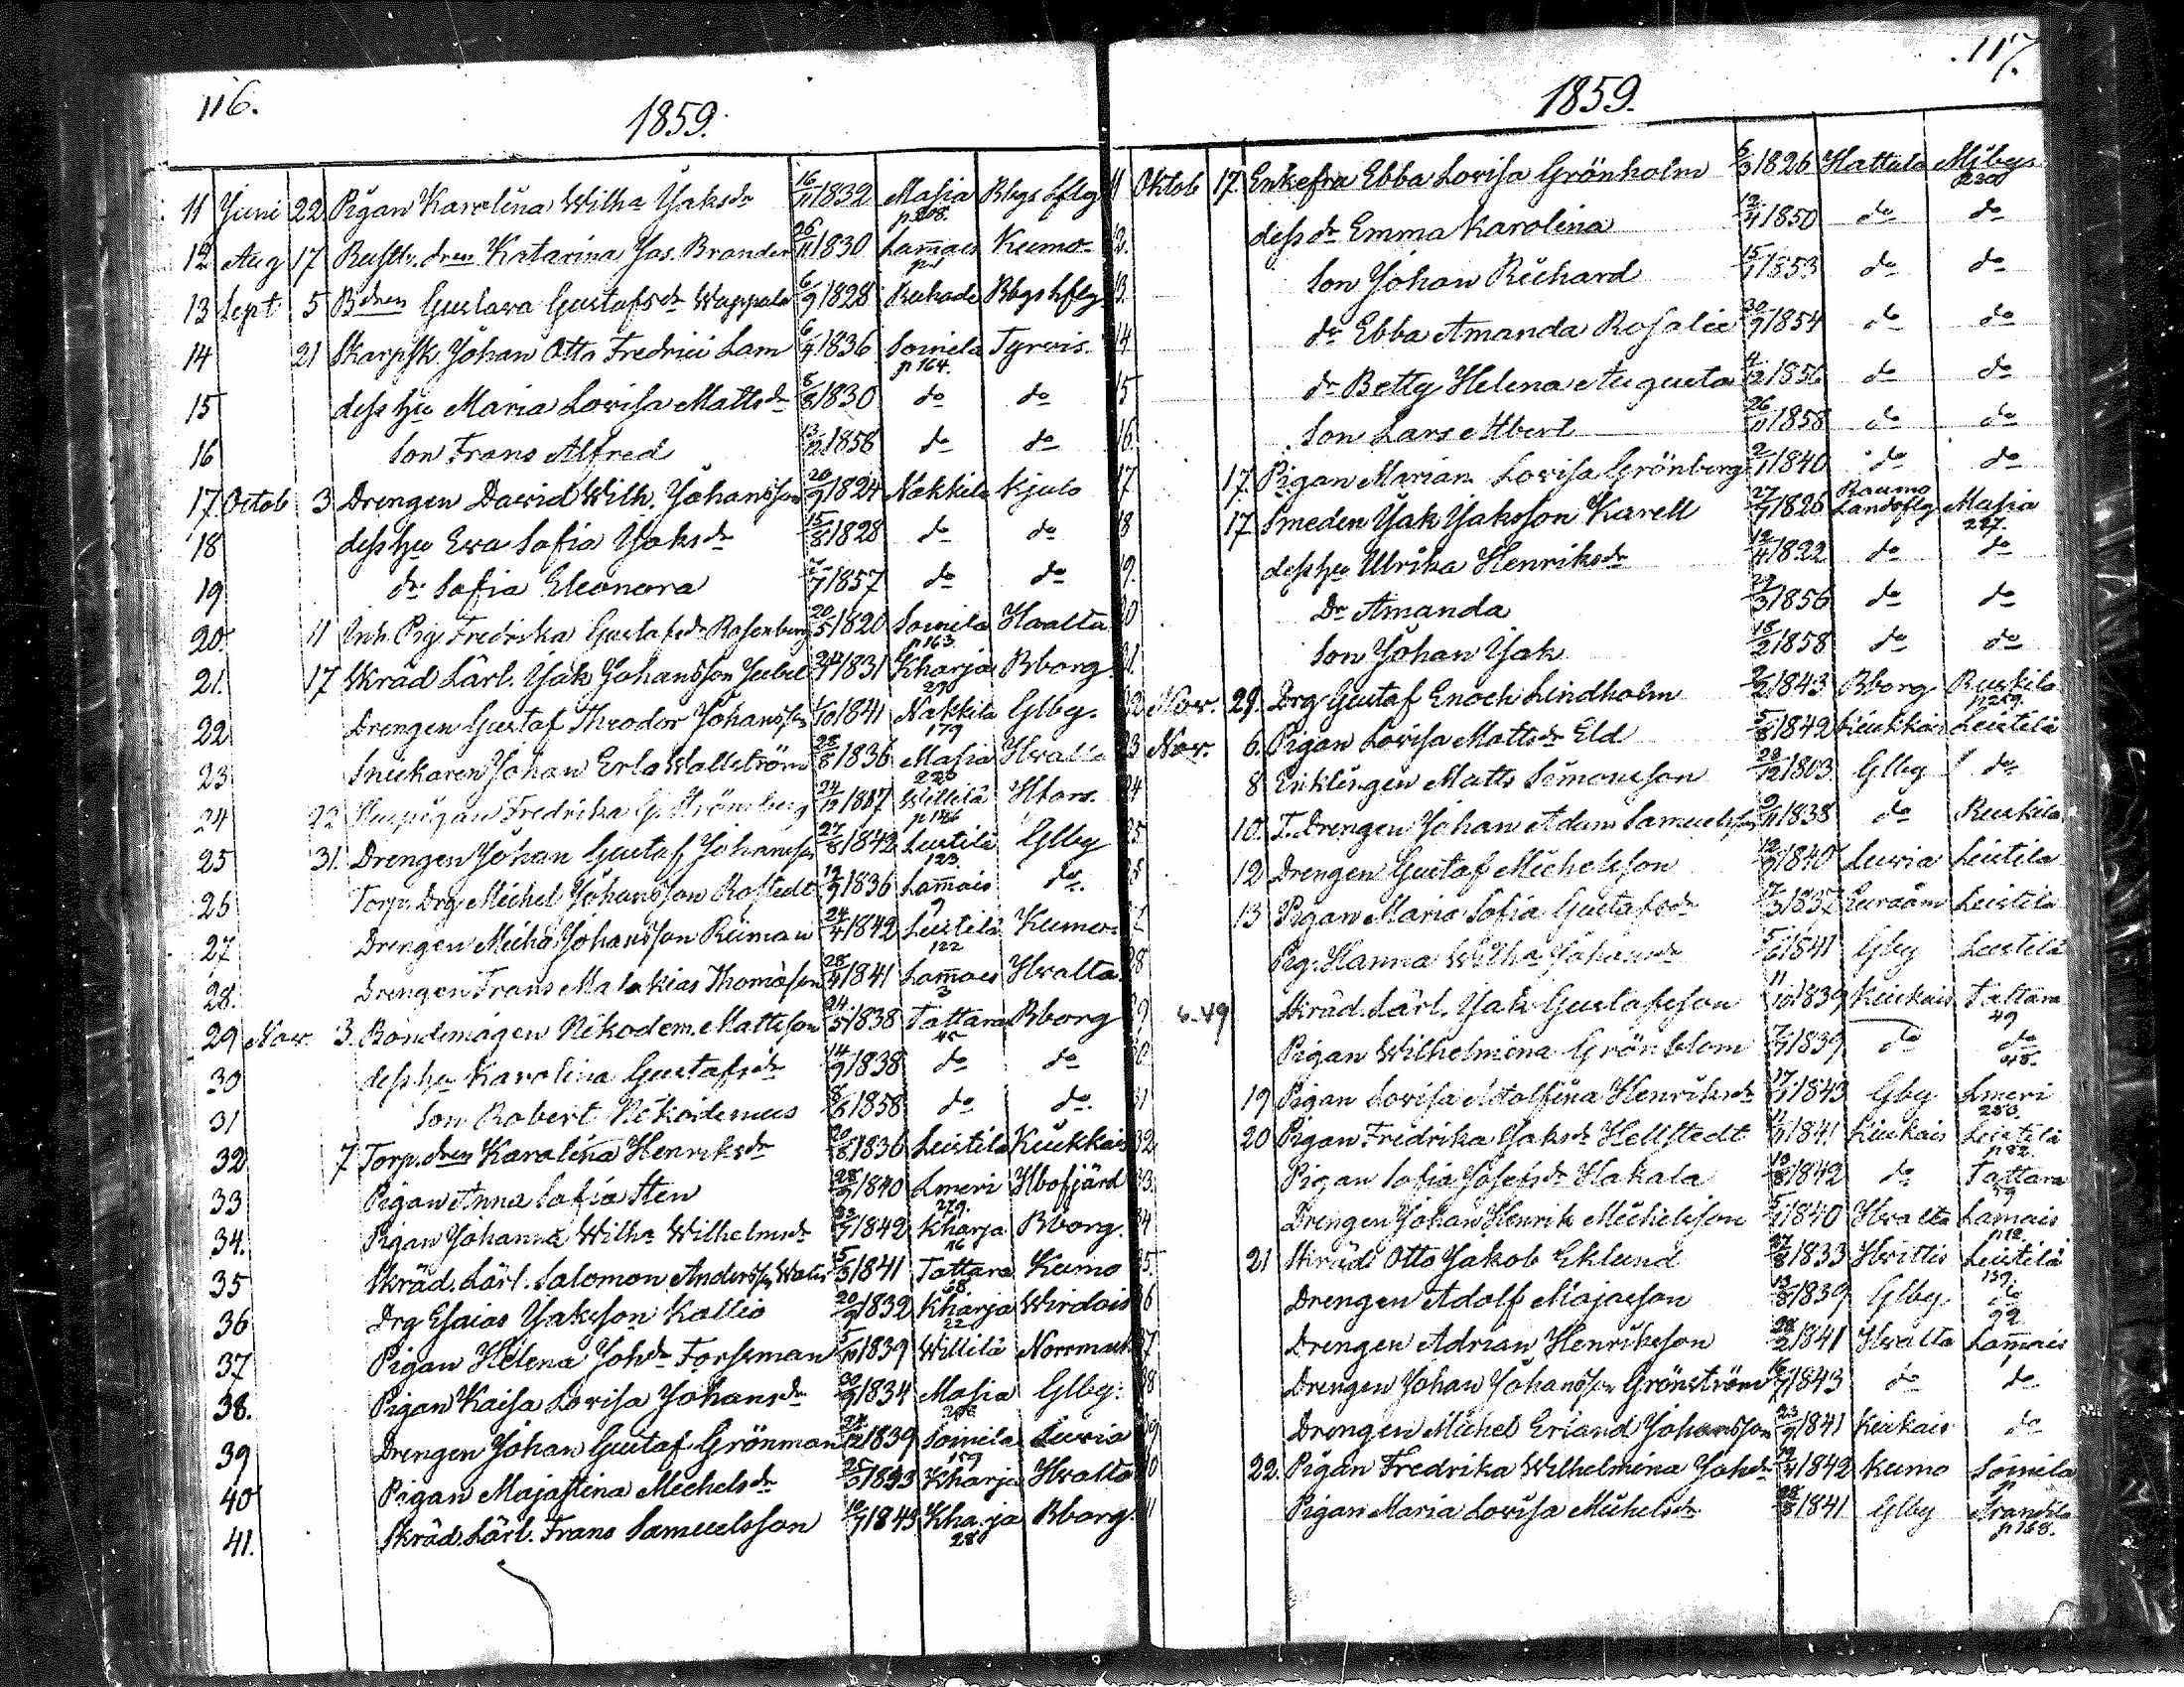 116.
1859.
11 Juni 22 Pigan Karolina Wilha Jaksdr 16/11 1832 Masia p 208. Bbgs Lflg
12 Aug 17 Rusth. dren Katarina Jos. Brander 26/11 1830 Lam̄ais p 1 Kumo
13 Sept 5 Bdren Gustava Gustafsdr Wappala 6/9 1828 Bbgs Lflg
14 21 Skarpsk. Johan Otto Fredrici Lam 6/4 1836 Soinila p 164. Tyrvis.
15 dess hu Maria Lovisa Mattsdr 8/8 1830 do do
16 Son Frans Alfred 13/12 1858 do do
17. Octob 3 Drengen David Wilh. Johansson 20/9 1824 Nakkila Kjulo
18 dess hu Eva Sofia Jaksdr 15/8 1828 do do
19 dr Sofia Eleonora 7/7 1857 do do
20. 11 Inh. Pig. Fredrika Gustafsdr Rosenberg 20/5 1820 Soinila p 163 Hvalta
21. 17 Skräd Lärl. Jak Johansson 24/4 1831 Kharja 290 Bborg
22 Drengen Gustaf Theodor Johansson 1/10 1841 Nakkila 179 Glby.
23 Snickaren Johan Erlo Wallström 28/8 1836 Masia 220 Hvalta
24 22 Fredrika G. Strömberg 24/12 1817 Willilä p 186 Hfors.
25 31. Drengen Johan Gustaf Johansson 27/8 1842 Leistilä 123 Glby
26 Torp. Drg Michel Johansson Rostedt 12/9 1836 Lam̄ais 9 do
27 Drengen Michel Johansson Riiman 24/4 1842 Leistilä 122 Kumo
28. Drengen Frans Malakias Thomasson 28/4 1841 Lam̄ais 3 Hvalta
29 Nov. 3. Bondemågen Nikodem. Mattsson 24/5 1838 Tattara Bborg
30 dess hu Karolina Gustafsdr 14/9 1838 do do
31 Son Robert Nikodemus 8/6 1858 do do
32 7 Torp. dren Karolina Henriksdr 20/8 1836 Leistilä Kiukkais
33 Pigan Anna Sofia Sten 28/7 1840 Lmeri 279. Hbofjärd
34. Pigan Johanna Wilha Wilhelmsdr 1842 Kharja 16 Bborg.
35 Skräd. Lärl. Salomon Andersson 5/3 1841 Tattara 68 Kumo
36 Drg Esaias Jaksson Kallio 20/9 1832 Kharja 22 Wirdois
37 Pigan Helena Johdr Forssman 5/10 1839 Willilä Norrmark
38. Pigan Kaisa Lovisa Johansdr 20/9 1834 Masia Glby.
39 Drengen Johan Gustaf Grönman 1839 Soinila 159 Luvia
40 Pigan Majastina Michelsdr 1833 Kharja Hvalta
41. Skräd. Lärl. Frans Samuelsson 10/7 1843 Kharja 28 Bborg.
117.
1859.
11 Oktob 17. Enkefru Ebba Lovisa Grönholm 6/3 1826 Hattula Mjby p 200
12. dess dr Emma Karolina 12/4 1850 do do
13. Son Johan Richard 15/1 1853 do do
14 dr Ebba Amanda Rosalie 30/9 1854 do do
15 dr Betty Helena Augusta 4/12 1856 do do
16. Son Lars Albert 26/11 1858 do do
17 17. Pigan Marian. Lovisa Grönberg 2/1 1840 do do
18 17 Smeden Jak Jaksson Karell 27/7 1826 Raumo Landsflg Masia 227.
19. dess hu Ulrika Henriksdr 12/4 1822 do do
20 Dr Amanda 29/3 1856 do do
21. Son Johan Jak 18/2 1858 do do
22 Nov. 29. Drg Gustaf Enoch Lindholm 1843 Bborg Ruskila p 259.
23 Nov. 6. Pigan Lovisa Mattsdr Eld 5/8 1842 Kiukkais Leistilä
24 8 Enklingen Matts Simonsson 28/12 1803 Glby do
25 10. T. Drengen Johan Adam Samuelsson 9/11 1838 do Ruskila
12 Drengen Gustaf Michelsson 12/9 1840 Luvia Leistilä
13 Pigan Maria Sofia Gustafsdr 1837 Euraåm. Leistilä
28 Pig. Hanna Wilha Johansdr 5/6 1841 Glby Leistilä
29 s. 49 Skräd. Lärl. Jak Gustafsson 11/10 1839 Kiukais Tattara 49
30 Pigan Wilhelmina Grönblom 1839 do do 48.
31 19 Pigan Lovisa Adolfina Henriksdr 1843 Glby Lmeri
32 20 Pigan Fredrika Jaksdr Hellstedt 1841 Kiukais Leistilä p 82.
33. Pigan Sofia Josefsdr Hakala 12/8 1842 do Tattara 59
34 Drengen Johan Henrik Michelsson 5/1 1840 Hvalta Lamais p 12.
35. 21 Skräd. Otto Jakob Eklund 27/8 1833 Hvittis Leistilä 139.
36 Drengen Adolf Majasson 13/8 1839 Glby do 92
37 Drengen Adrian Henriksson 28/2 1841 Hvalta Lam̄ais 1
38 Drengen Johan Johansson Grönström 16/7 1843 do do
39 Drengen Michel Erland Johansson 23/9 1841 Kiukais do
40 22. Pigan Fredrika Wilhelmina Johdr 1842 Kumo Soinila
41 Pigan Maria Lovisa Michelsdr 1841 Glby Frandila p 168.